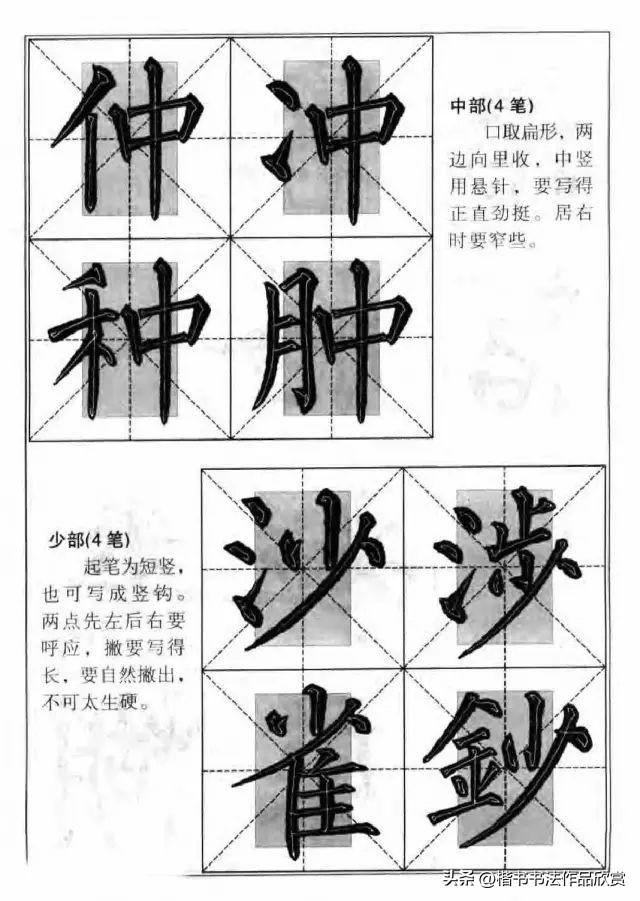 仲冲
中部(4笔)
口取扁形，两
边向里收，中竖
用悬针，要写得
正直劲挺。居右
时要窄些。
种肿
少部(4笔)
起笔为短竖，
也可写成竖钩。
两点先左后右要
呼应，撇要写得
长，要自然撇出，
不可太生硬。
沙涉
雀鈔
头条 @楷书书法作品欣赏